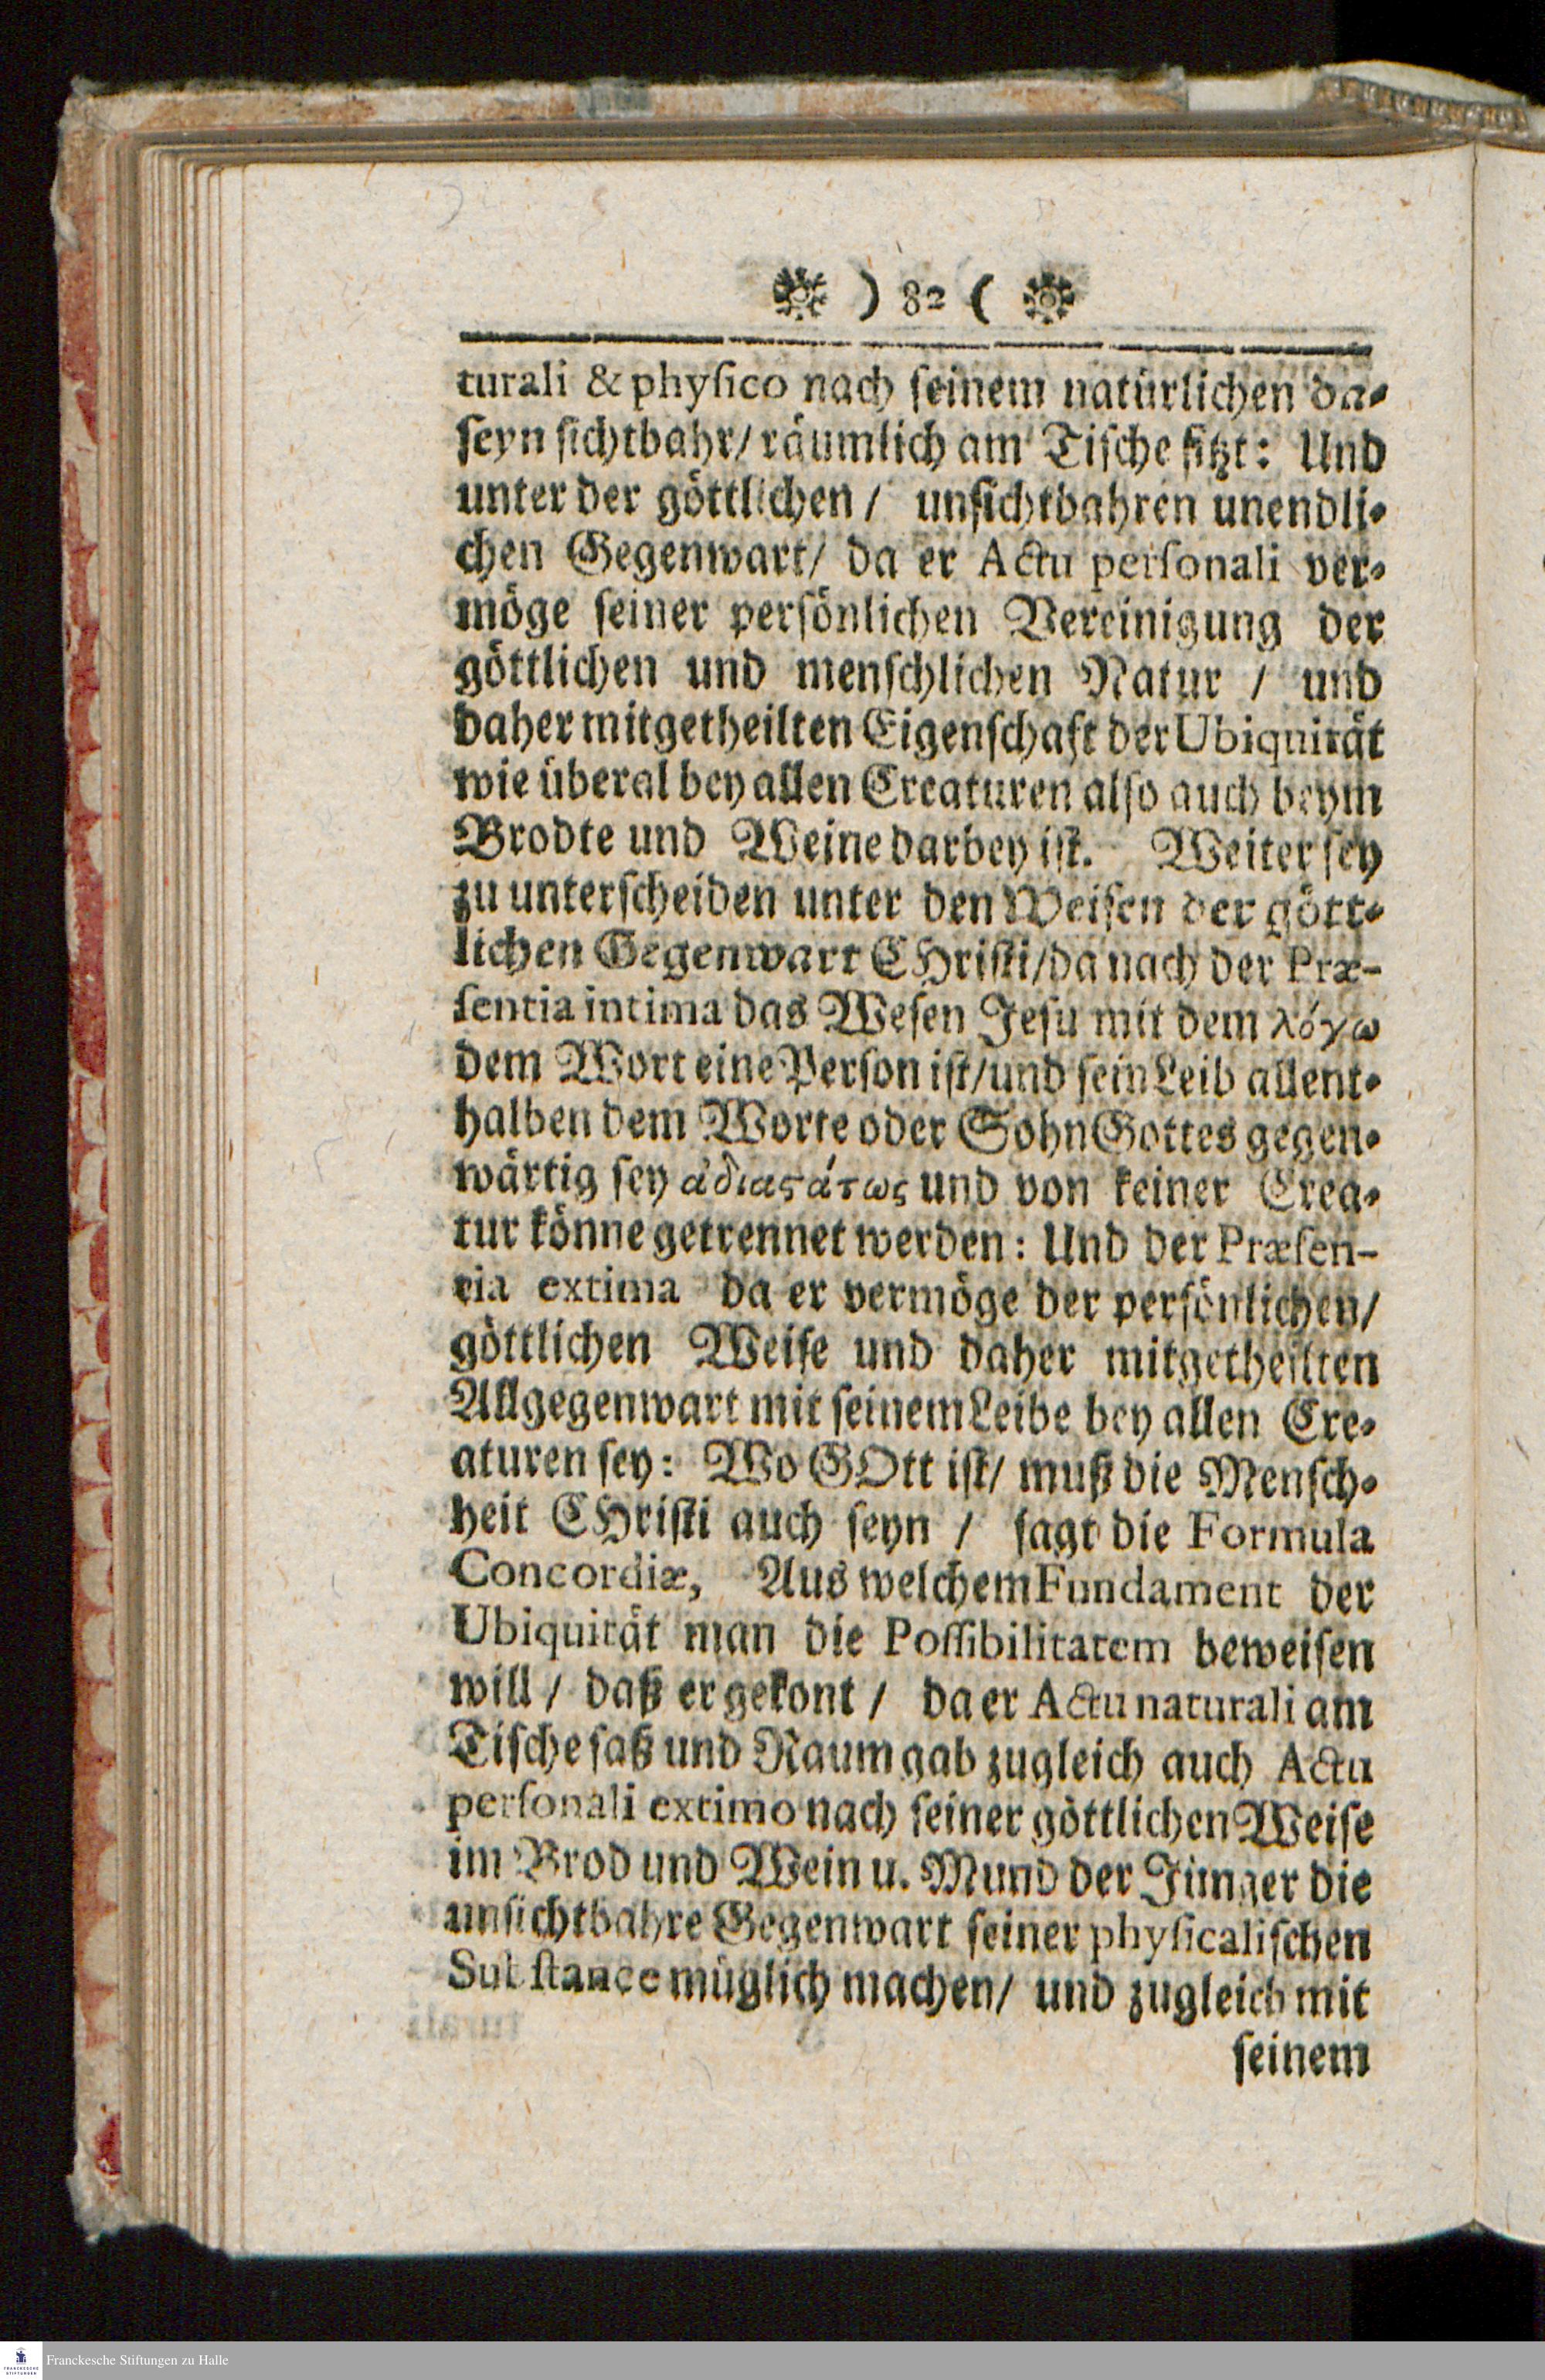 ) 82 (
turali & phyſico nach ſeinem natürlichen da-
ſeyn ſichtbahr/ räumlich am Tiſche ſitzt: Und
unter der göttlichen / unſichtbahren unendli-
chen Gegenwart/ da er Actu perſonali ver-
möge ſeiner perſönlichen Vereinigung der
göttlichen und menſchlichen Natur / und
daher mitgetheilten Eigenſchaft der Ubiquität
wie überal bey allen Creaturen alſo auch beym
Brodte und Weine darbey iſt. Weiter ſey
zu unterſcheiden unter den Weiſen der gött-
lichen Gegenwart CHriſti/da nach der Præ-
ſentia intima das Weſen Jeſu mit dem λόγω
dem Wort eine Perſon iſt/und ſein Leib allent-
halben dem Worte oder Sohn Gottes gegen-
wärtig ſey ἀδιαϛάτως und von keiner Crea-
tur könne getrennet werden: Und der Præſen-
tia extima da er vermöge der perſönlichen/
göttlichen Weiſe und daher mitgetheilten
Allgegenwart mit ſeinem Leibe bey allen Cre-
aturen ſey: Wo GOtt iſt/ muß die Menſch-
heit CHriſti auch ſeyn / ſagt die Formula
Concordiæ, Aus welchem Fundament der
Ubiquität man die Poſſibilitatem beweiſen
will / daß er gekont / da er Actu naturali am
Tiſche ſaß und Raum gab zugleich auch Actu
perſonali extimo nach ſeiner göttlichen Weiſe
im Brod und Wein u. Mund der Jünger die
unſichtbahre Gegenwart ſeiner phyſicaliſchen
Subſtance müglich machen/ und zugleich mit
ſeinem
Franckesche Stiftungen zu Halle